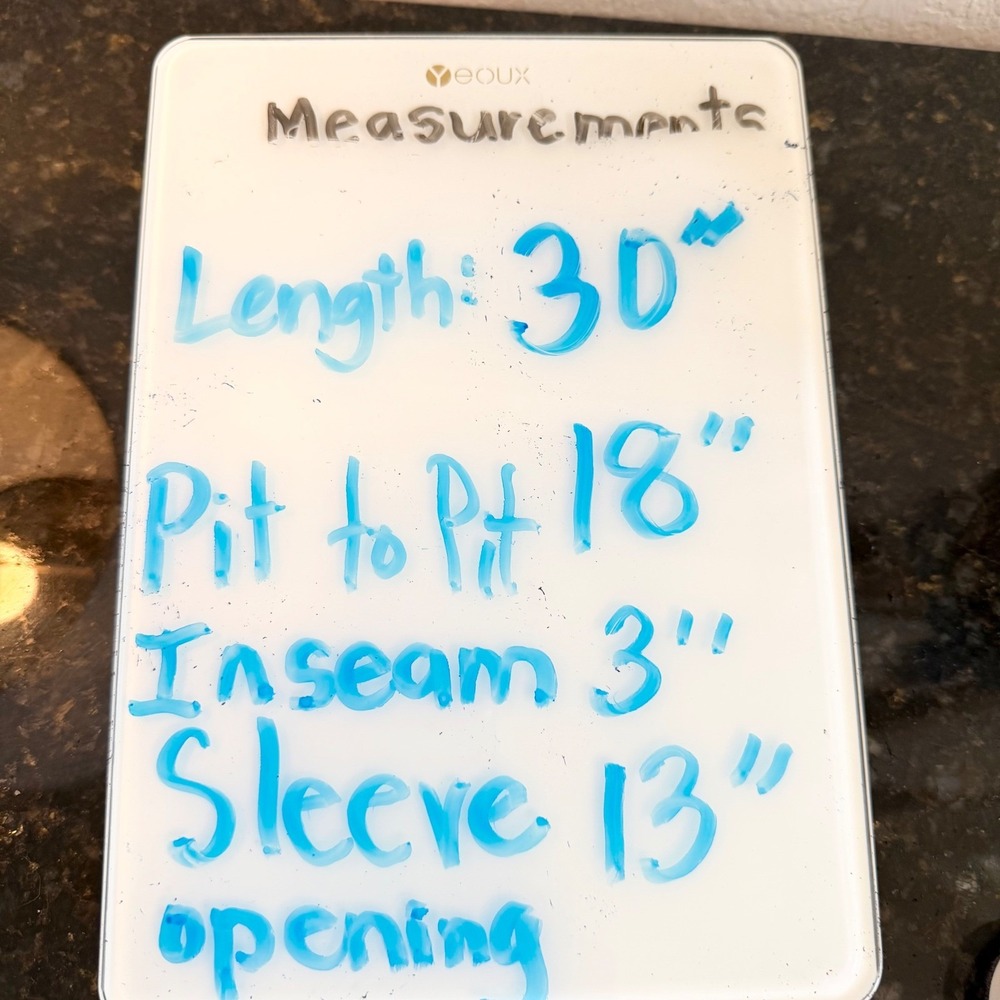 Yeoux
Measurements
Length: 30"
Pit to Pit 18"
Inseam 3"
Sleeve 13"
opening